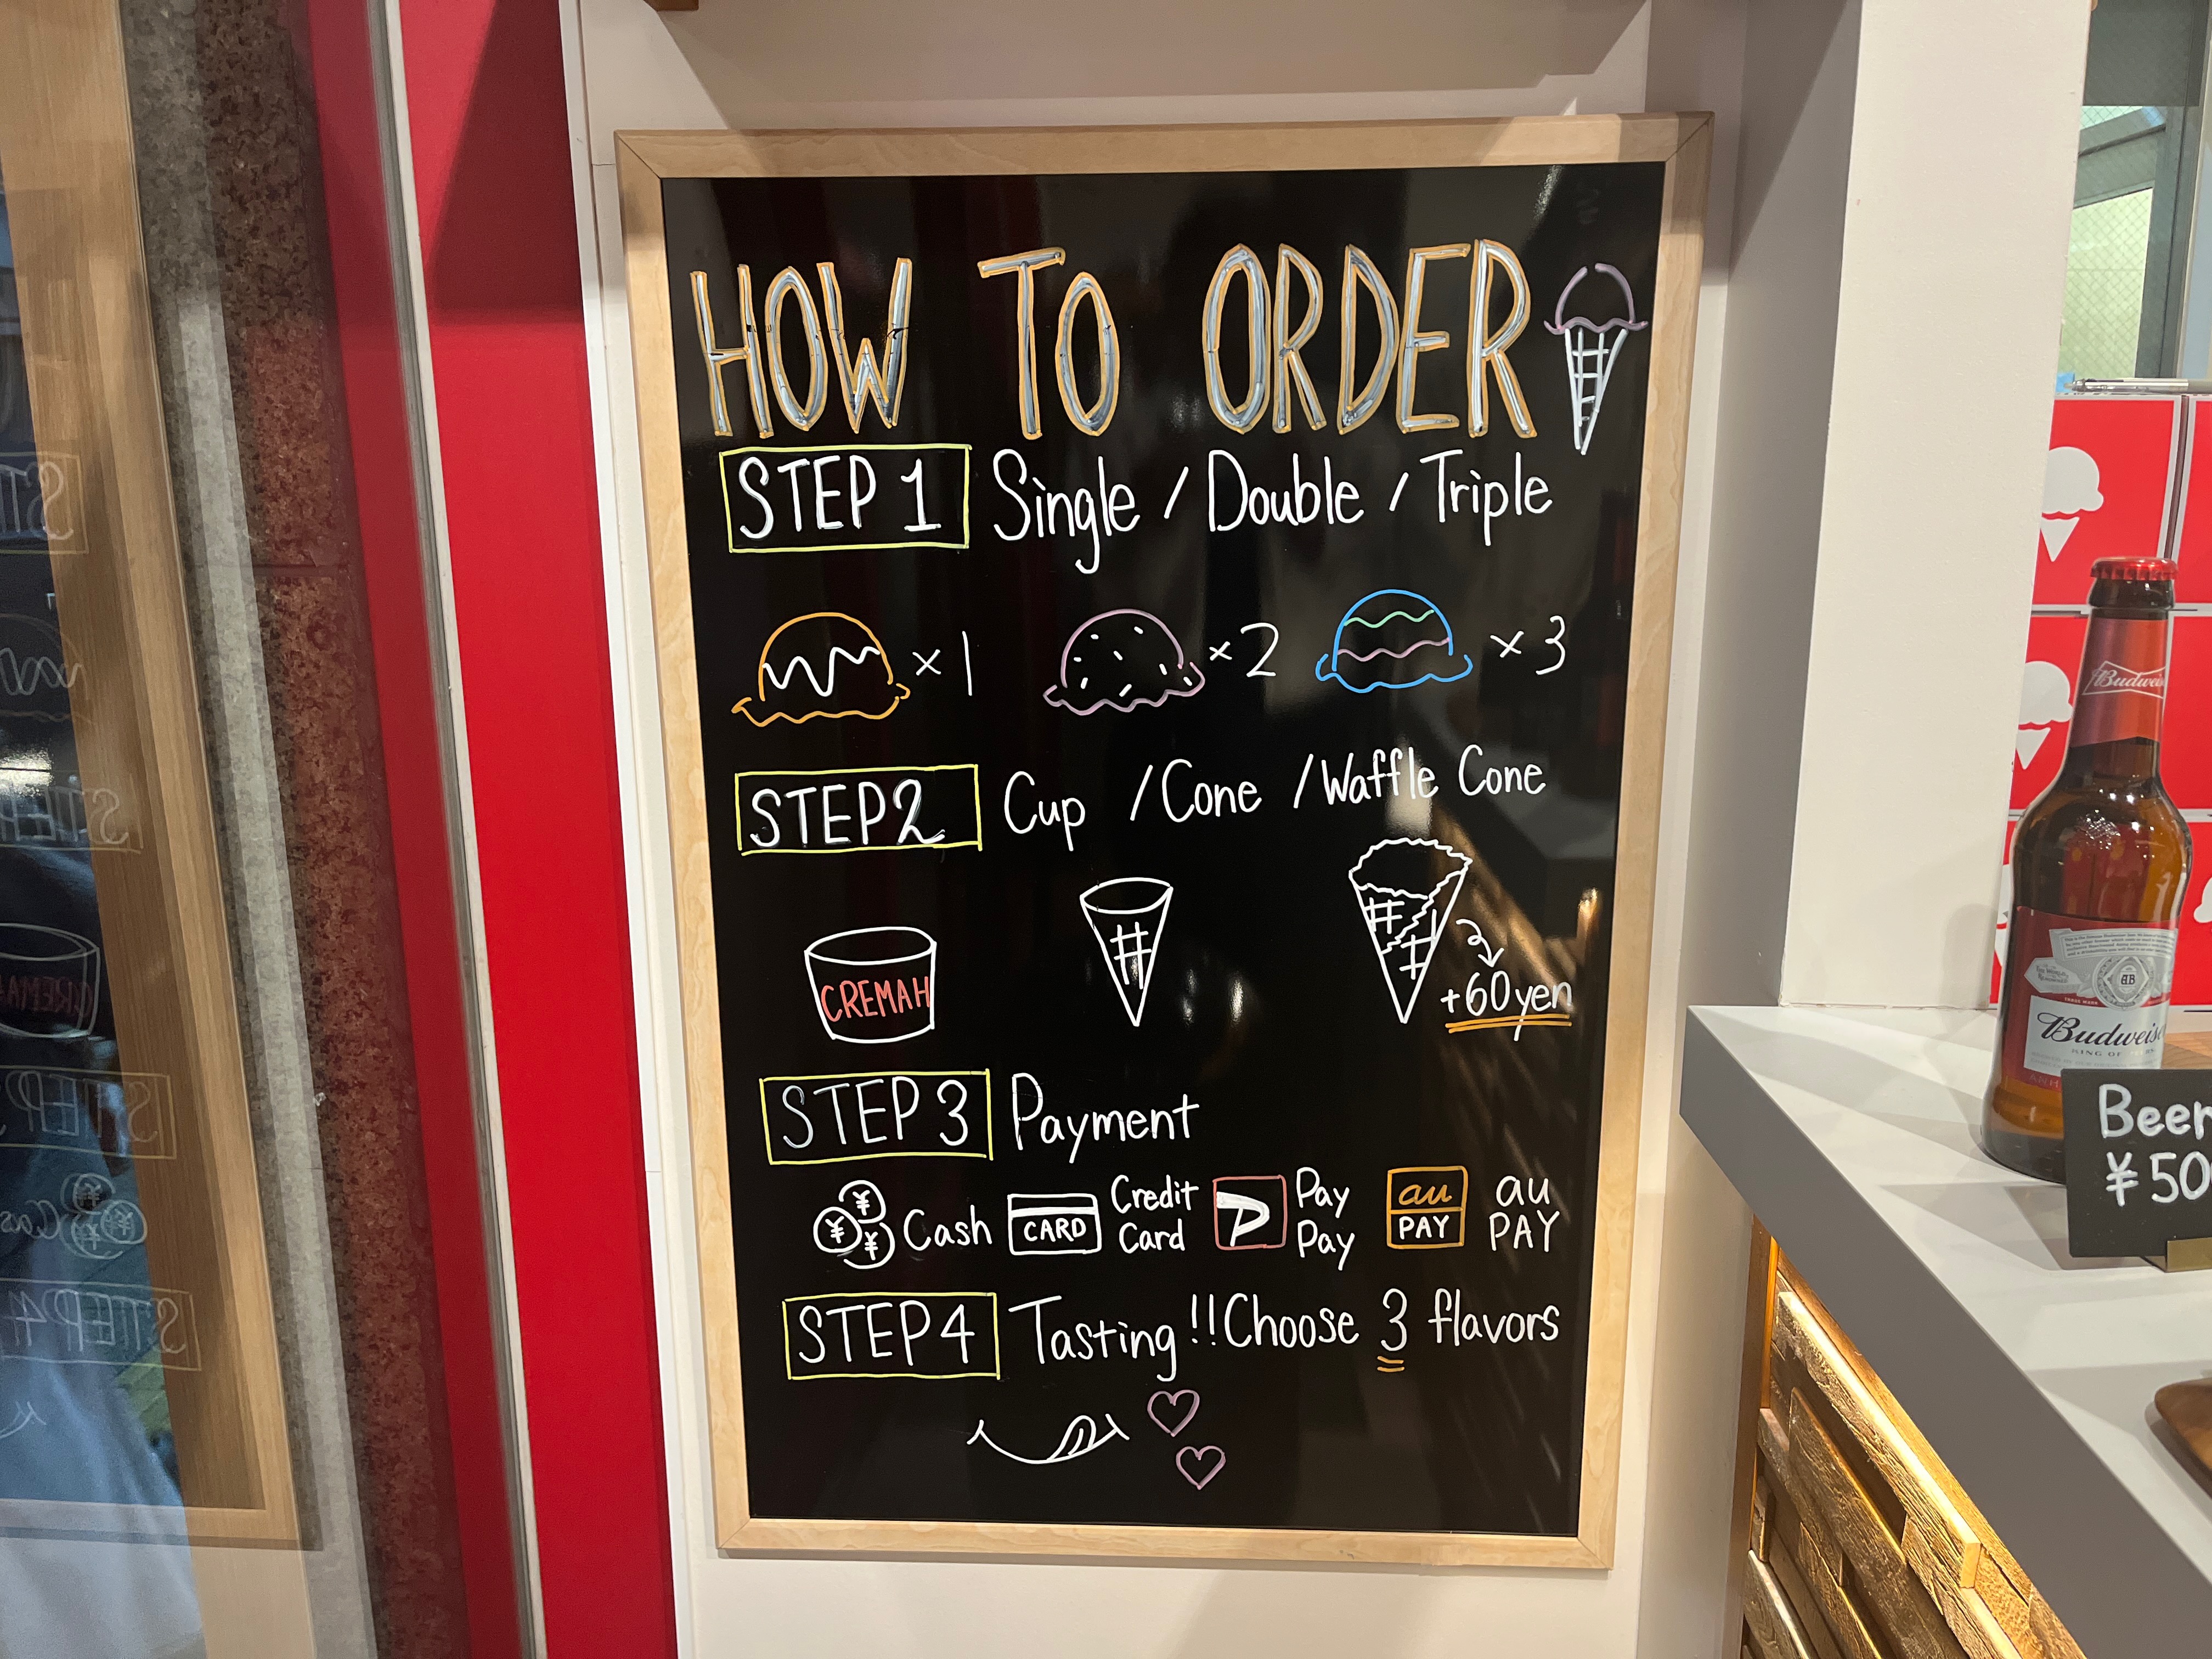 HOW TO ORDER
STEP 1 Single / Double / Triple
×1 ×2 ×3
STEP2 Cup / Cone / Waffle Cone
CREMAH
+60yen
STEP 3 Payment
Cash CARD Credit Card P Pay Pay au PAY au PAY
STEP4 Tasting!! Choose 3 flavors
Budweis
Budweise
KING OF
Beer
¥50